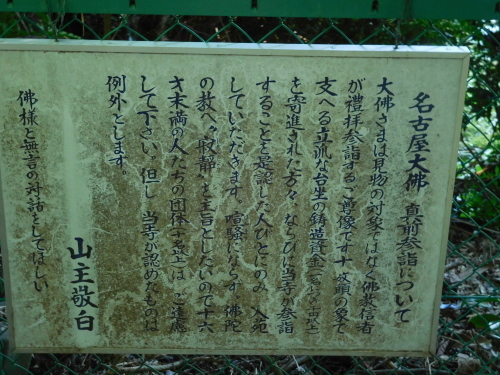 名古屋大佛 真前参詣について
大佛さまは見物の対象ではなく佛教信者
が禮拝参詣するご尊像です十数頭の象で
支へる立派な台坐の鋳造資金
を寄進された方々、ならびに当寺が参詣
することを是認した人びとにのみ 入苑
していただきます。喧騒にならず、佛陀
の教へ〝寂静〟を主旨としたいので十六
才未満の人たちの団体 は、ご遠慮
して下さい。但し、当寺が認めたものは
例外とします。
山主敬白
佛様と無言の対話をしてほしい